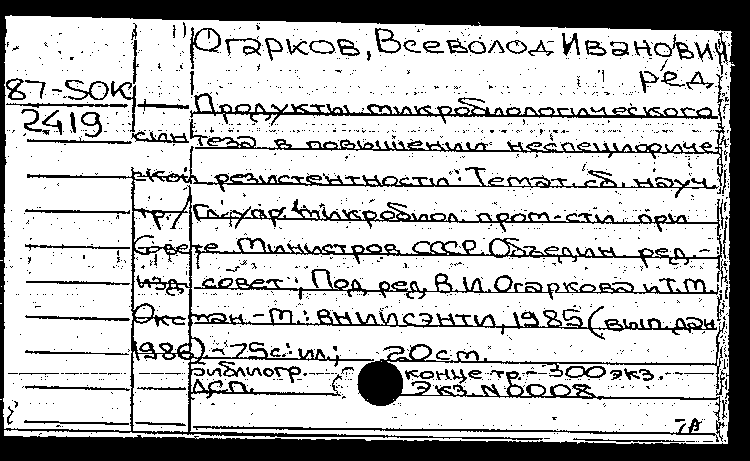 Огарков, Всеволод Иванович
ред.
87-SOK
2419
Продукты микробиологического
синтеза в повышении неспецифиче
ской резистентности: Темат. сб. науч.
тр. / Гл. упр. микробиол. пром-сти при
Совете Министров СССР. Объедин. ред.-
изд. совет; Под ред. В.И. Огаркова и Т.М.
- М.: ВНИИСЭНТИ, 1985 (вып. дан
1986) - 75 с.: ил.; 20 см.
Библиогр. конце тр. - 300 экз.
ДСП. Экз. N 0008